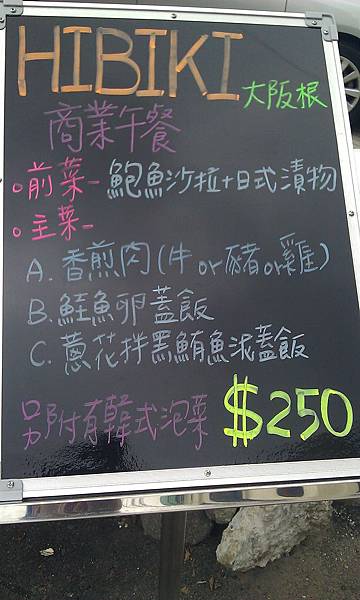 HIBIKI 大阪根
商業午餐
前菜- 鮑魚沙拉+日式漬物
主菜-
A. 香煎肉(牛or豬or雞)
B. 鮭魚卵蓋飯
C. 蔥花拌黑鮪魚泥蓋飯
另附有韓式泡菜 $250